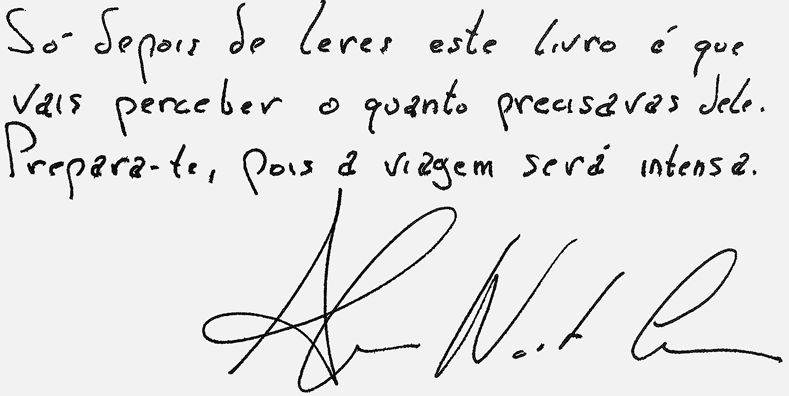 Só depois de leres este livro é que
vais perceber o quanto precisavas dele.
Prepara-te, pois a viagem será intensa.